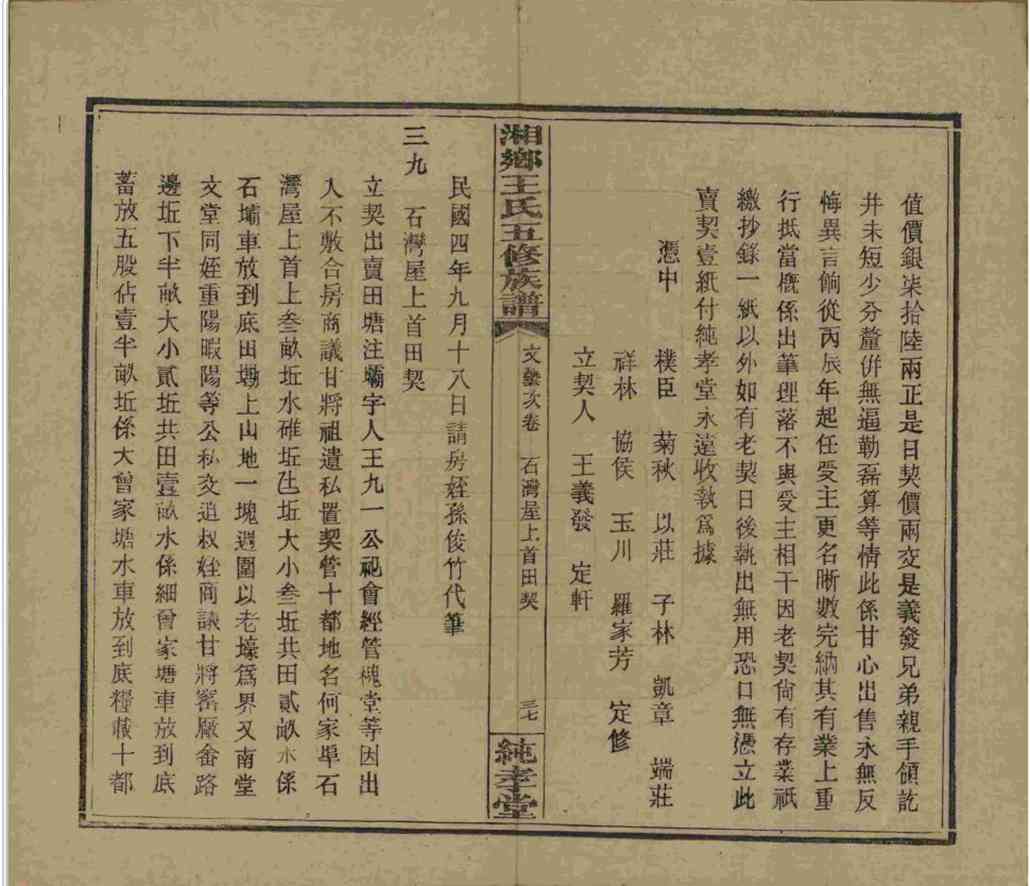 值價銀柒拾陸兩正是日契價兩交是義發兄弟親手領訖
并未短少分釐倂無逼勒磊算等情此係甘心出售永無反
悔異言餉從丙辰年起任受主更名晰數完納其有業上重
行抵當概係出筆理落不與受主相干因老契尙有存業祇
繳抄錄一紙以外如有老契日後執出無用恐口無憑立此
賣契壹紙付純孝堂永遠收執爲據
憑中 樸臣 菊秋 以莊 子林 凱章 端莊
祥林 協侯 玉川 羅家芳 定修
立契人 王義發 定軒
湘鄉王氏五修族譜 文藝次卷 石灣屋上首田契 三七 純孝堂
民國四年九月十八日請房姪孫俊竹代筆
三九 石灣屋上首田契
立契出賣田塘注壩字人王九一公祀會經管槐堂等因出
入不敷合房商議甘將祖遺私置契管十都地名何家埠石
灣屋上首上叁畝坵水碓坵坵大小叁坵共田貳畝水係
石壩車放到底田墈上山地一塊週圍以老壕爲界又南堂
文堂同姪重陽暇陽等公私交逍叔姪商議甘將窰廠畲路
邊坵下半畝大小貳坵共田壹畝水係細曾家塘車放到底
蓄放五股佔壹半畝坵係大曾家塘水車放到底糧載十都